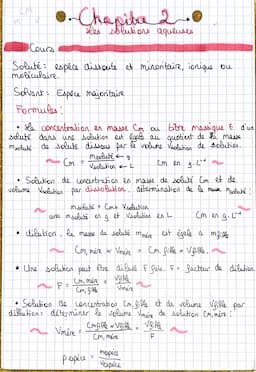 Chapitre 2
les solutions aqueuses
Cours
Soluté : espèce dissoute et minoritaire, ionique ou
moléculaire.
Solvant : Espèce majoritaire
Formules :
• La concentration en masse Cm ou titre massique t d'un
soluté dans une solution est égale au quotient de la masse
msoluté de soluté dissous par le volume Vsolution de solution.
Cm = msoluté ← g / Vsolution ← L    Cm en g.L⁻¹
• Solution de concentration en masse de soluté Cm et de
volume Vsolution par dissolution, détermination de la masse msoluté :
msoluté = Cm × Vsolution
avec msoluté en g et Vsolution en L    Cm en g.L⁻¹
• dilution, la masse de soluté mmère est égale à mfille
Cm, mère × Vmère = Cm, fille × Vfille.
• Une solution peut être diluée F fois. F = facteur de dilution.
F = Cm, mère / Cm, fille = Vfille / Vmère
• Solution de concentration Cm, fille et de volume Vfille par
dilution : déterminer le volume Vmère de solution Cm, mère :
Vmère = Cm, fille × Vfille / Cm, mère = Vfille / F
ρespèce = mespèce / Vespèce